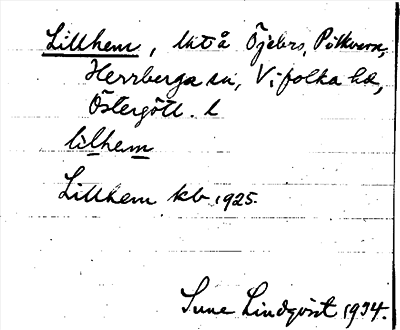 Lillhem, utå Öjebro, Pålkvarn,
Herrberga sn, Vifolka hd,
Östergötl. l
lilhem
Lillhem kb. 1925.
Sune Lindqvist 1934.